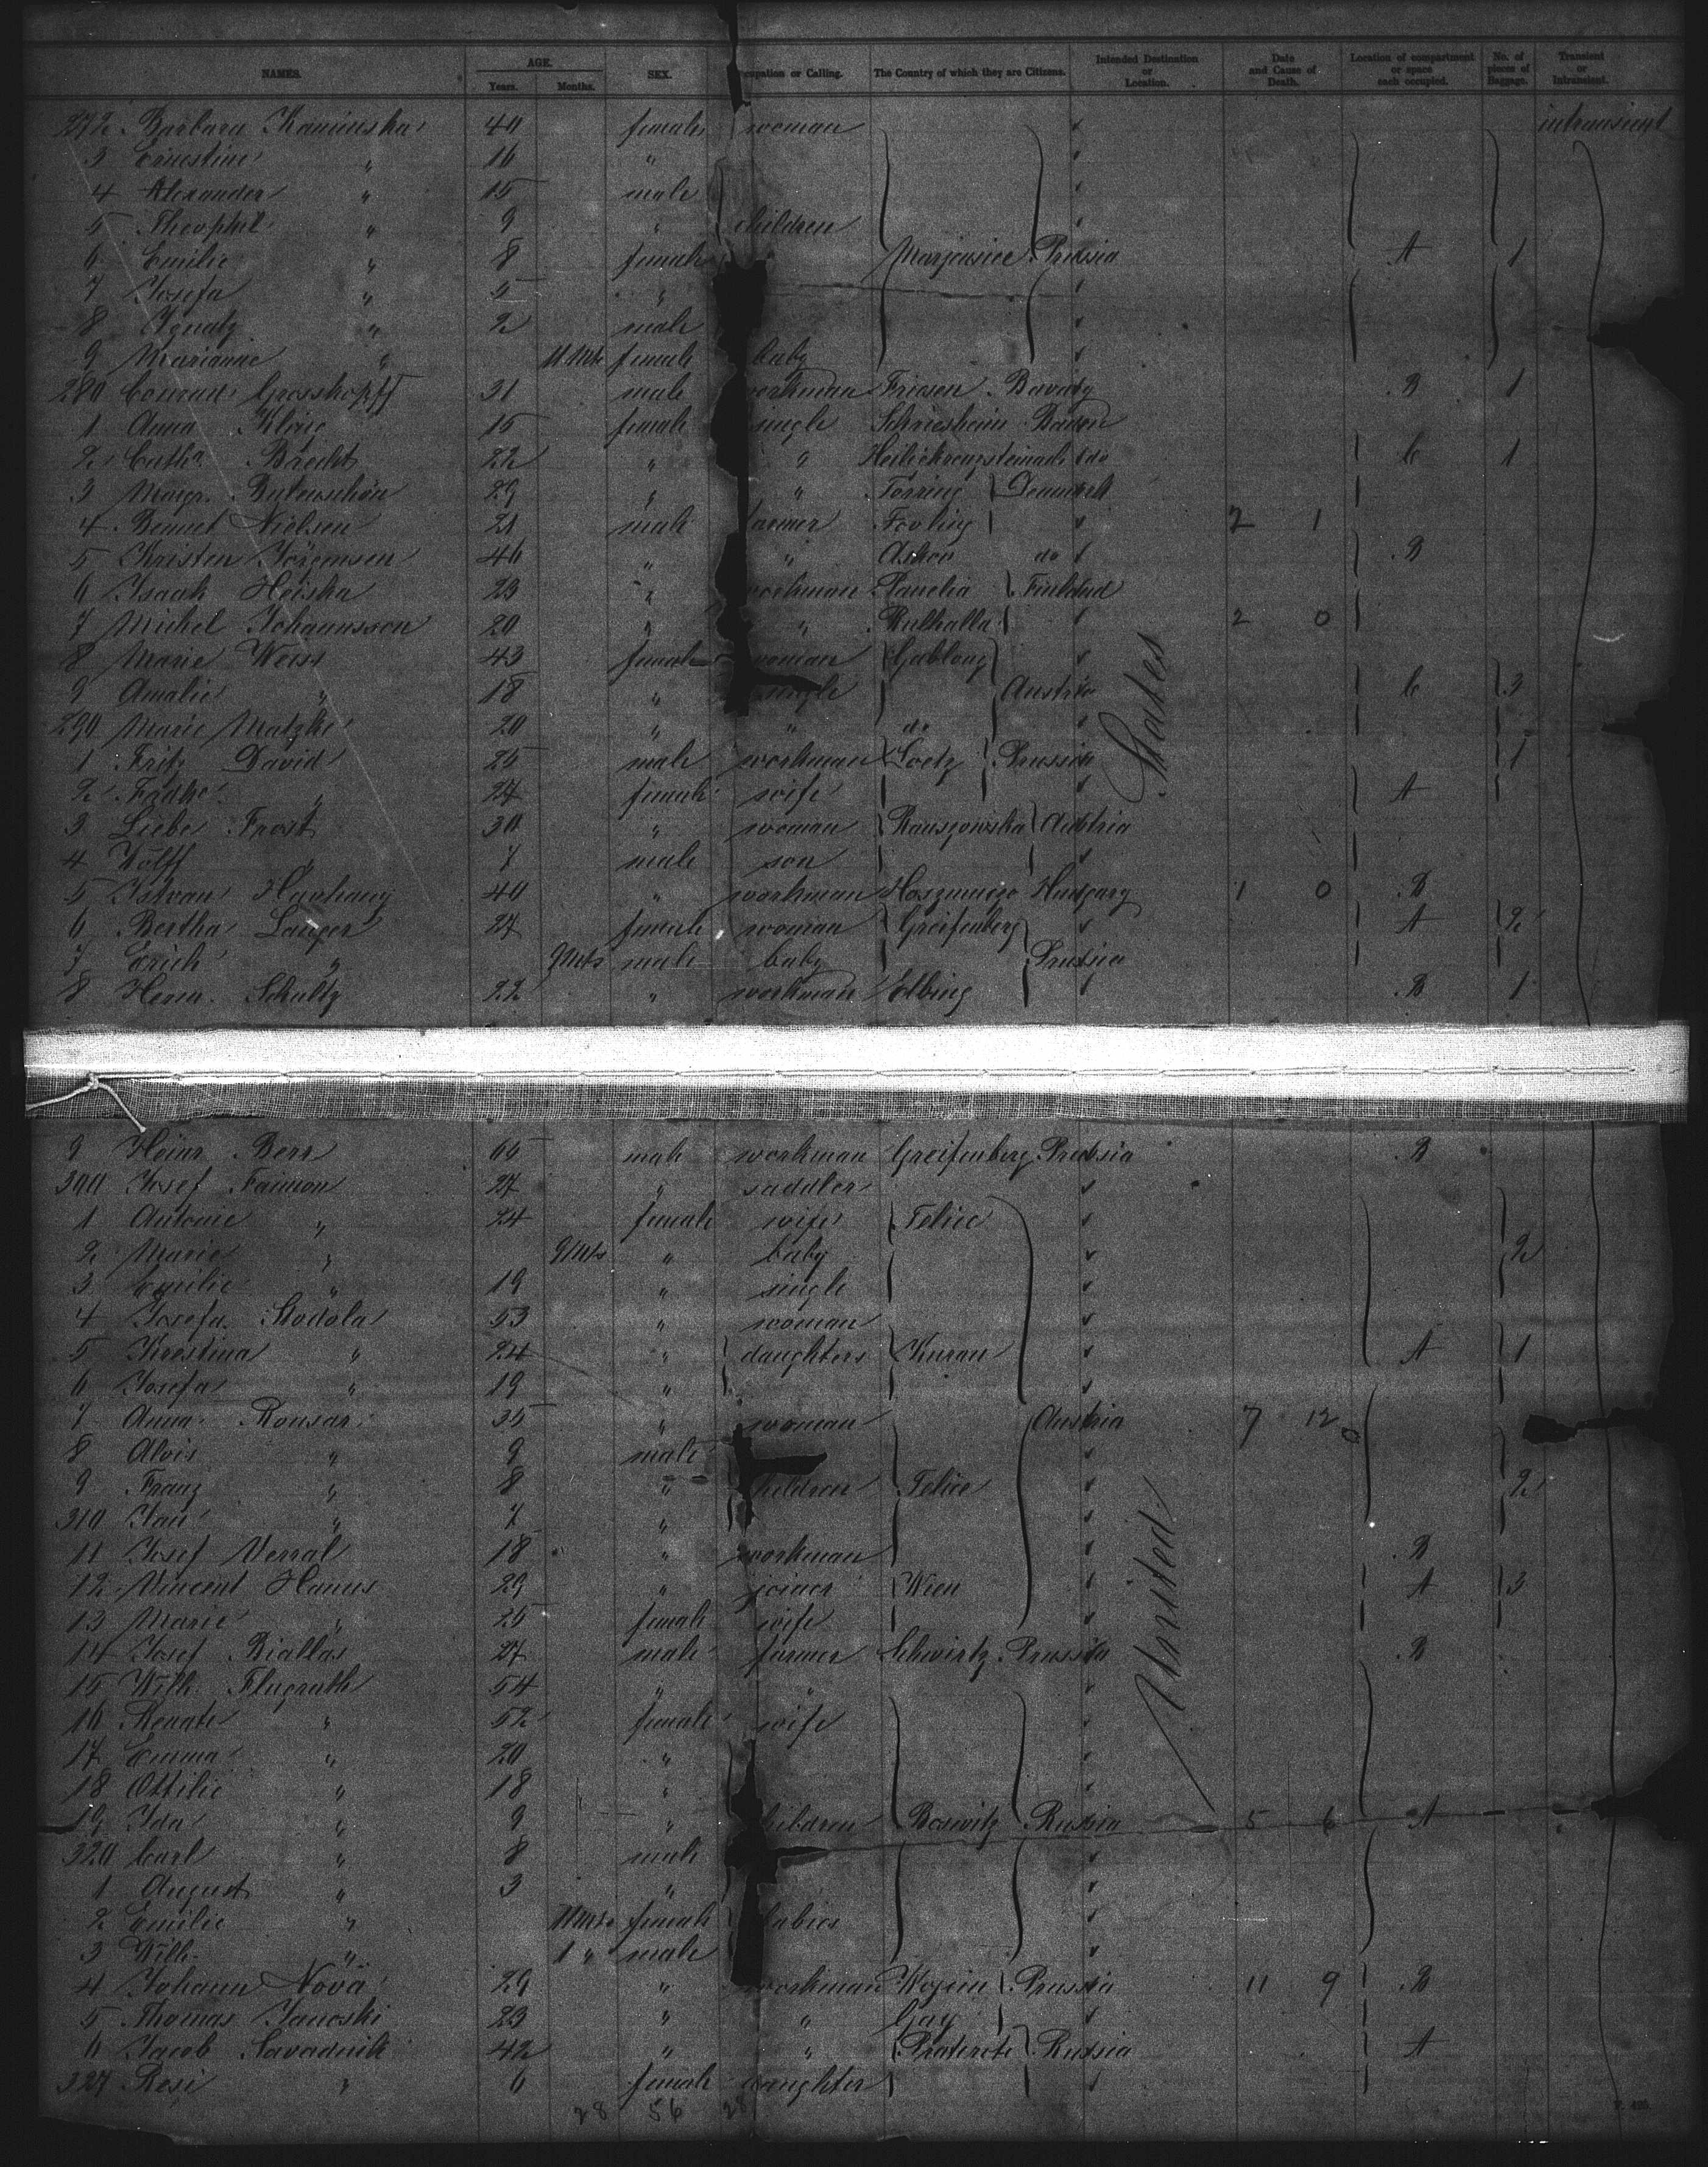 NAMES. AGE. Years. Months. SEX. Occupation or Calling. The Country of which they are Citizens. Intended Destination or Location. Date and Cause of Death. Location of compartment or space each occupied. No. of pieces of Baggage. Transient or Intransient.
272 Barbara Kaminska 40 female woman intransient
3 Ernestine " 16 "
4 Alexander " 15 male
5 Theophil " 9 " children
6 Emilie " 8 female Prussia A 1
7 Josefa " 5 "
8 Ignatz " 2 male
9 Marianne " 11 Mts female baby
280 Conrad Grosskopff 31 male workman Friesen Bavaria B 1
1 Anna Kling 15 female single Schriesheim Baden
2 Cath. Brecht 22 " " Heiligkreuzsteinach do C 1
3 Margr. Butenschön 29 " " Törring Denmark
4 Bennet Nielsen 21 male farmer Fovling 2 1
5 Kristen Jörgensen 46 " " Askov do B
6 Isaak Heiska 23 " workman Panelia Finland
7 Michel Johannsson 20 " " 2 0
8 Marie Weiss 43 female woman Gablonz
9 Amalie " 18 " single Austria C 3
290 Marie Matzke 20 " " do States
1 Fritz David 25 male workman Loetz Prussia 1
2 " 24 female wife A
3 Liebe Frost 30 " woman Austria
4 Wolff " 7 male son
5 Istvan 40 " workman Hungary 1 0 B
6 Bertha Langer 24 female woman Greifenberg A 2
7 Erich " 9 Mts male baby Prussia
8 Herm. Schultz 22 " workman Elbing B 1
9 Heinr. Berr 65 male workman Greifenberg Prussia B
300 Josef Faimon 27 " saddler
1 Antonie " 24 female wife Telice
2 Marie " 9 Mts " baby 2
3 Emilie " 19 " single
4 Josefa Stodola 53 " woman
5 Kristina " 24 " daughters A 1
6 Josefa " 19 "
7 Anna Rousar 35 " woman Austria 7 12
8 Alois " 9 male
9 Franz " 8 " children Telice 2
310 Jan " 7 "
11 Josef 18 " workman B
12 Vincent Hanus 29 " joiner Wien A 3
13 Marie " 25 female wife United
14 Josef Biallas 27 male farmer Schwirtz Prussia B
15 Wilh. Flugrath 54 " "
16 Renate " 52 female wife
17 Emma " 20 "
18 Ottilie " 18 "
19 Ida " 9 " children Russia 5 6 A
320 Carl " 8 male
1 August " 3 "
2 Emilie " 11 Mts female babies
3 Wilh. " 1 " male
4 Johann Nová 29 " workman Prussia 11 9 B
5 Thomas Janoski 23 " " Gay
6 Jacob Savadnik 42 " " Russia A
327 Resi " 6 female daughter
28 56 28